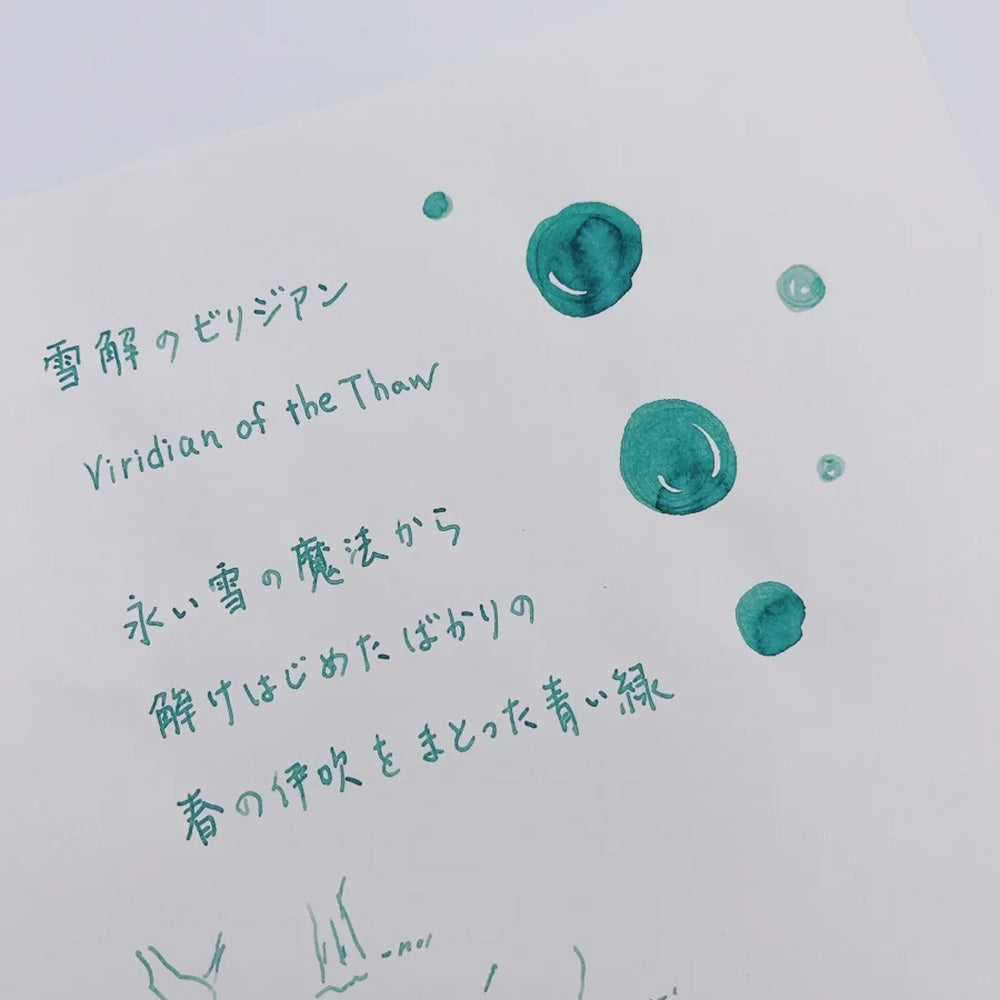 雪解のビリジアン
Viridian of the Thaw
永い雪の魔法から
解けはじめたばかりの
春の伊吹をまとった青い緑